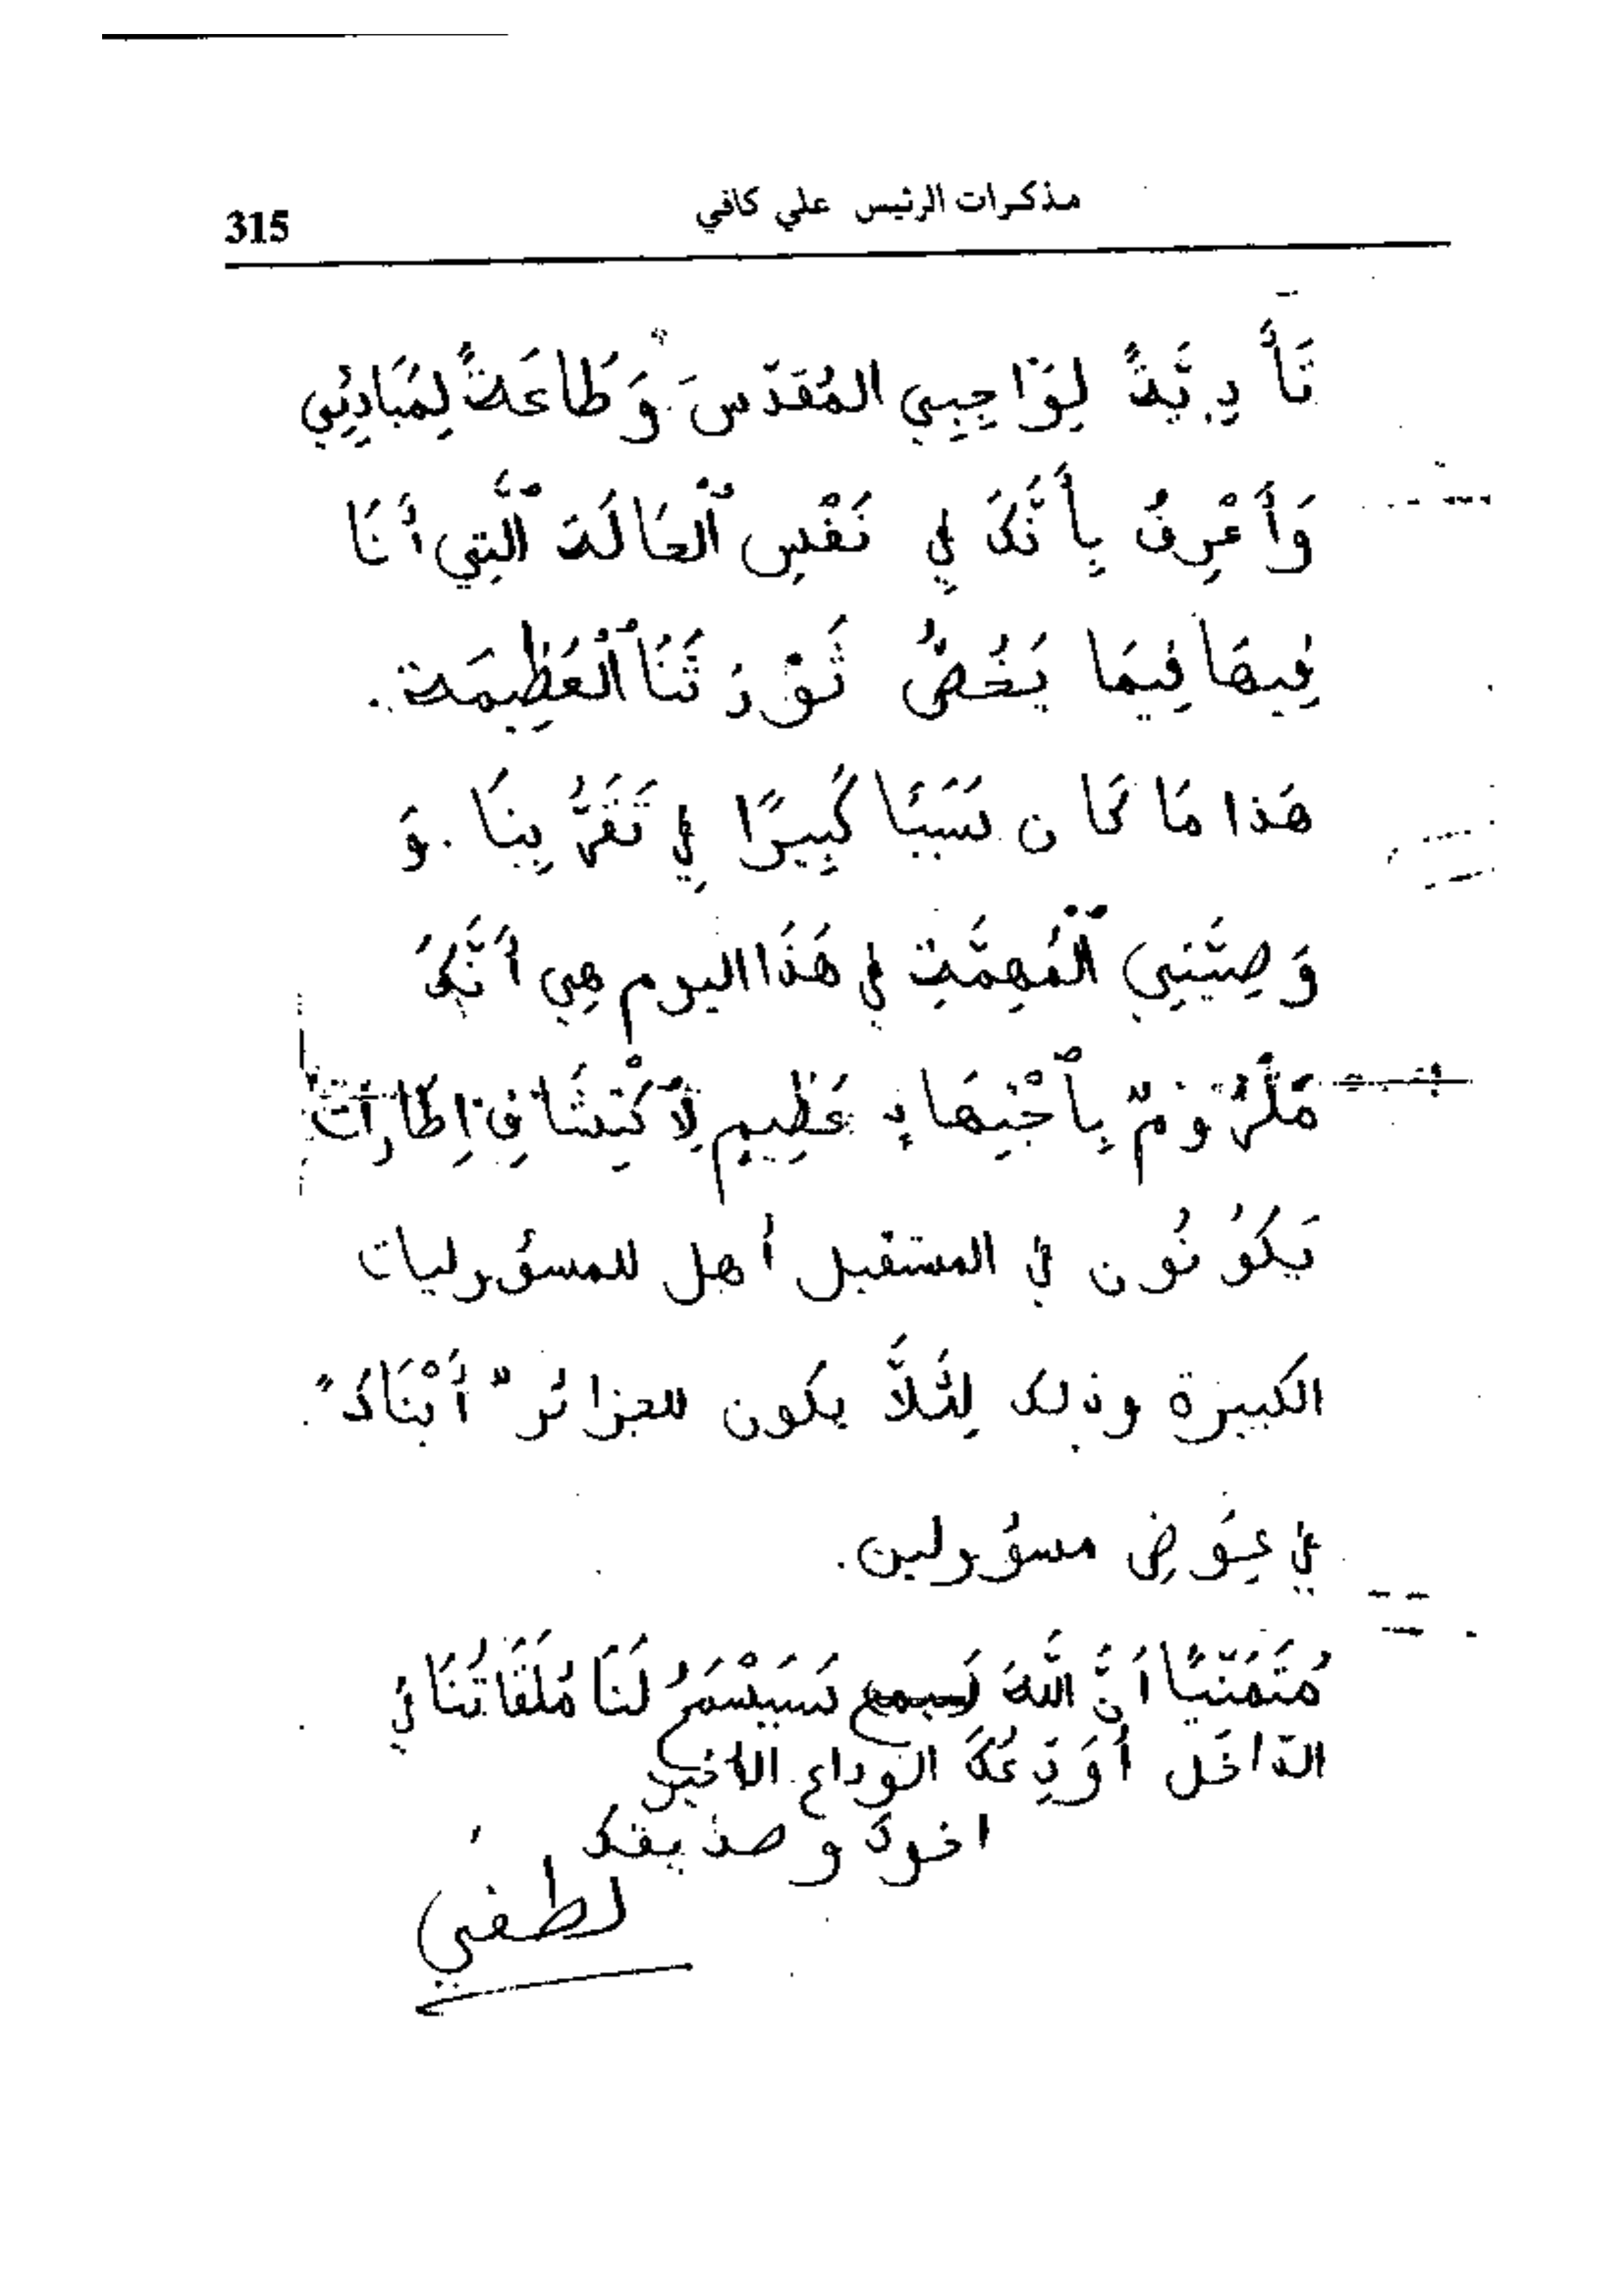 مذكرات الرئيس علي كافي
315
تَأدِيَةً لِوَاجِبِي المُقَدّسَ وَطَاعَةً لِمَبَادِئِي
وَأَعْرِفُ بِأَنَّكَ فِي نَفْسِ ٱلْحَالَةَ ٱلَّتِي أَنَا
فِيهَا فِيمَا يَخُصُّ ثَوْرَتَنَا ٱلْعَظِيمَة.
هَذا مَا كَان سَبَبَا كَبِيرًا فِي تَقَرُّبِنَا. وَ
وَصِيَّتِي ٱلْمُهِمَّة في هَذَا اليوم هِي أَنَّكَ
مَلْزُومٌ بِٱجْتِهَادٍ عَظِيمٍ لِٱكْتِشَافِ إِطَارَات
يَكُونُون في المستقبل أهل للمسؤوليات
الكبيرة وذلك لِئَلاَّ يكون للجزائر "أَبْنَاكَ"
في عِوَضِ مسؤولين.
مُتَمَنّيًا أَنَّ اللَّهَ سَيَسْمَحُ لَنَا مُلَقَاتُنَا في
الدّاخَل أُوَدِعُكَ الوداع الأخير
اخوكَ وصديقك
لطفي